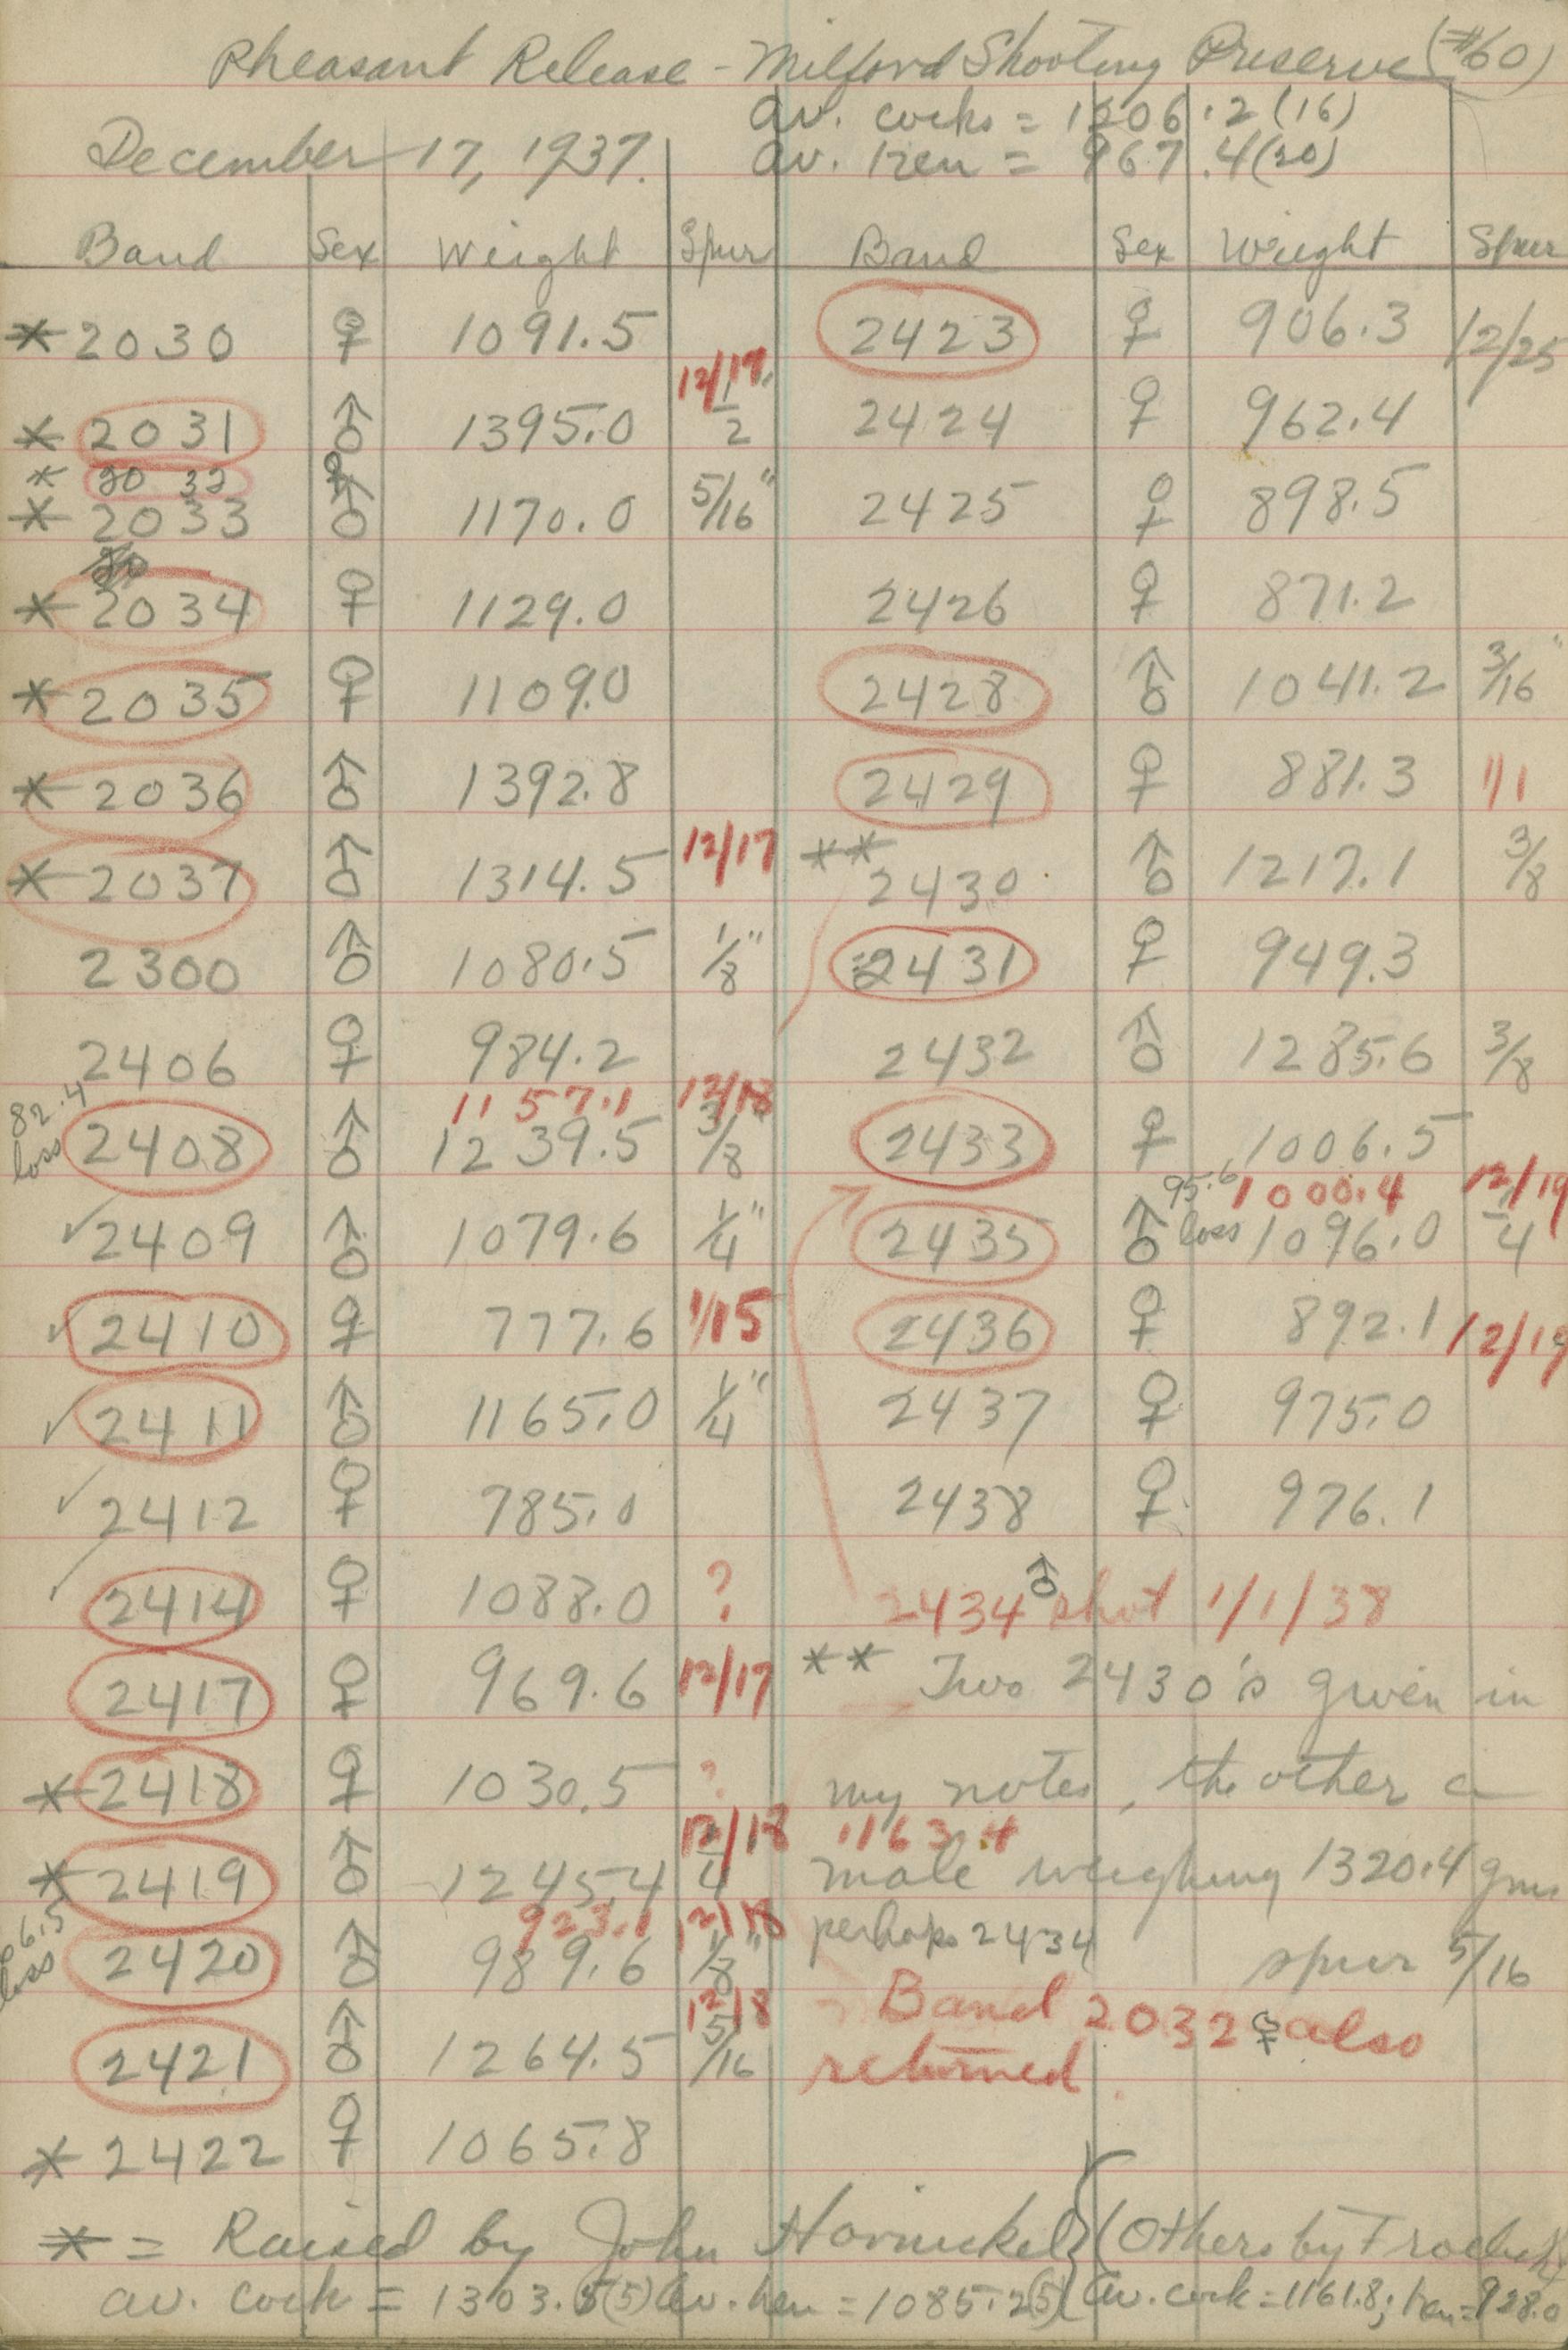 Pheasant Release - Milford Shooting Preserve (#60)
av. cocks = 1206.2 (16)
December 17, 1937. av. hen = 967.4 (20)
Band Sex Weight Spur Band Sex Weight Spur
* 2030 ♀ 1091.5 2423 ♀ 906.3 12/25
12/19
* 2031 ♂ 1395.0 1/2" 2424 ♀ 962.4
* 2032 ♀
* 2033 ♂ 1170.0 5/16" 2425 ♀ 898.5
* 2034 ♀ 1129.0 2426 ♀ 871.2
* 2035 ♀ 1109.0 2428 ♂ 1041.2 3/16"
* 2036 ♂ 1392.8 2429 ♀ 881.3 1/1
* 2037 ♂ 1314.5 12/17 ** 2430 ♂ 1217.1 3/8
2300 ♂ 1080.5 1/8" 2431 ♀ 949.3
2406 ♀ 984.2 2432 ♂ 1285.6 3/8
82.4 1157.1 12/18
loss 2408 ♂ 1239.5 3/8 2433 ♀ 1006.5
95.6 1000.4 12/19
✓ 2409 ♂ 1079.6 1/4" 2435 ♂ loss 1096.0 1/4
✓ 2410 ♀ 777.6 1/15 2436 ♀ 892.1 12/19
✓ 2411 ♂ 1165.0 1/4" 2437 ♀ 975.0
✓ 2412 ♀ 785.0 2438 ♀ 976.1
✓ 2414 ♀ 1088.0 ? 2434 ♂ shot 1/1/38
2417 ♀ 969.6 12/17 ** Two 2430's given in
* 2418 ♀ 1030.5 ? my notes, the other a
12/18 1163.4
* 2419 ♂ 1245.4 1/4 male weighing 1320.4 gms
6.5 923.1 12/18 perhaps 2434
loss 2420 ♂ 989.6 1/8" spur 5/16
12/18 Band 2032 ♀ also
2421 ♂ 1264.5 5/16 returned.
* 2422 ♀ 1065.8
* = Raised by John Hornickel } (Others by
av. cock = 1303.5 (5) av. hen = 1085.2 (5) { av. cock = 1161.8; hen = 928.0